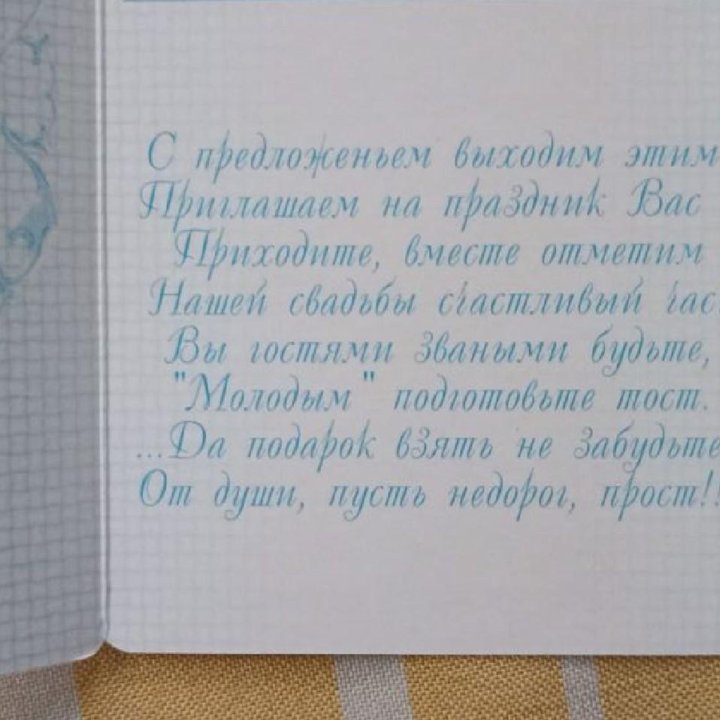 С предложеньем выходим этим
Приглашаем на праздник Вас
Приходите, вместе отметим
Нашей свадьбы счастливый час
Вы гостями зваными будьте,
"Молодым" подготовьте тост.
...Да подарок взять не забудьте
От души, пусть недорог, прост!!